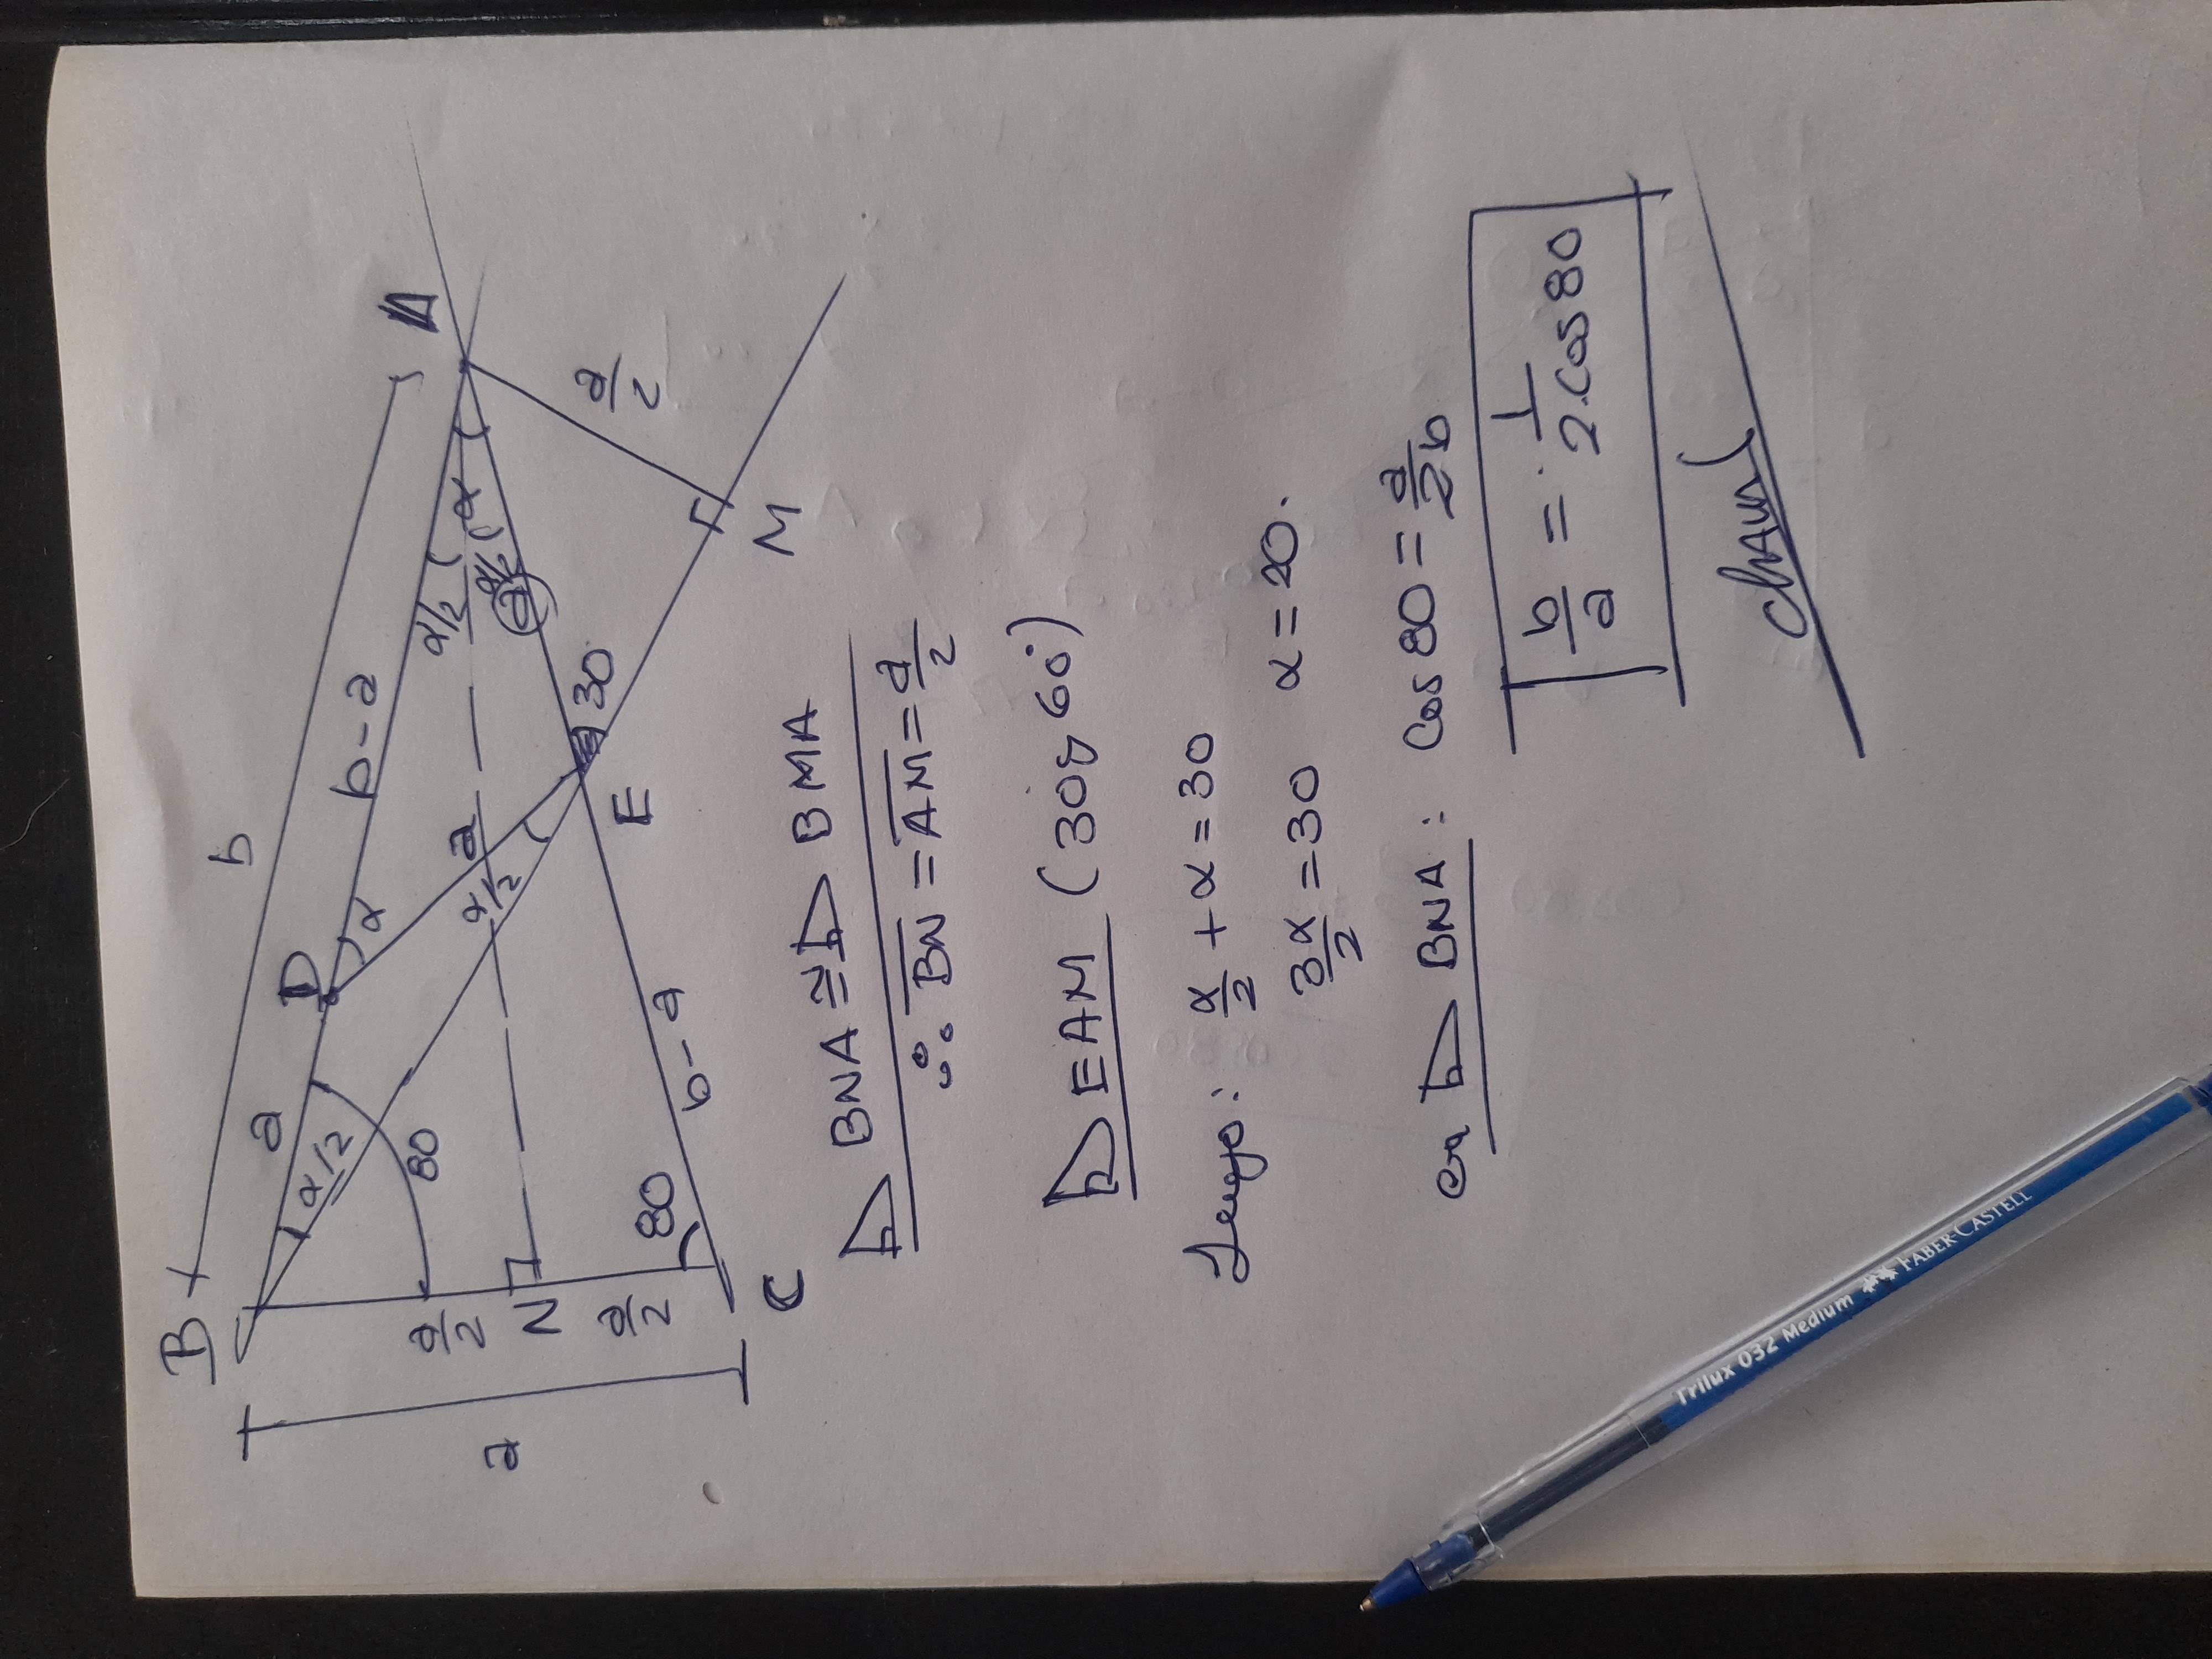 B
b
A
a
D
b-a
α/2
80
α
α/2
α/2
α
a
α/2
a
30
a/2
M
E
a
a/2
N
a/2
80
b-a
C
⊿ BNA ≅ ⊿ BMA
∴ BN = AM = a/2
⊿ EAM (30 y 60°)
Luego: α/2 + α = 30
3α/2 = 30 α = 20.
en ⊿ BNA: Cos 80 = a/2b
b/a = 1/2.Cos 80
Trilux 032 Medium FABER-CASTELL